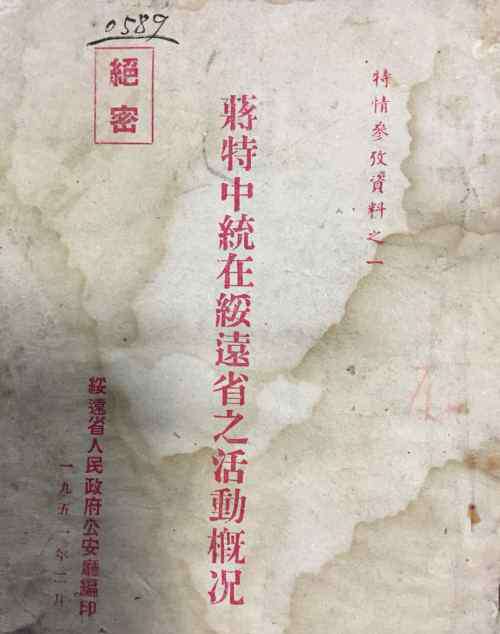 0589
絕密
特情參攷資料之一
蔣特中統在綏遠省之活動概况
綏遠省人民政府公安廳編印
一九五一年二月